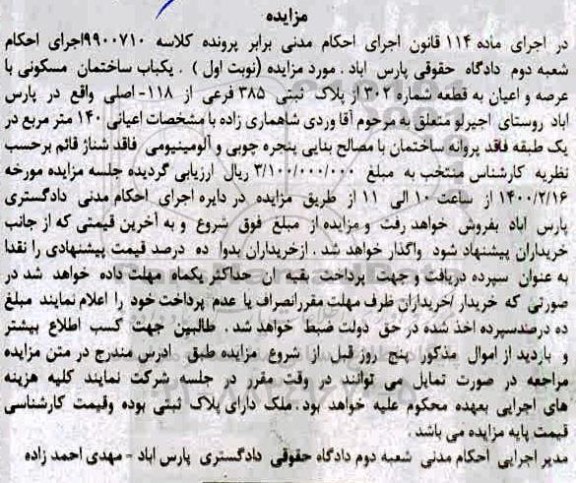 مزایده
در اجرای ماده ۱۱۴ قانون اجرای احکام مدنی برابر پرونده کلاسه ۹۹۰۰۷۱۰اجرای احکام
شعبه دوم دادگاه حقوقی پارس اباد . مورد مزایده (نوبت اول ) . یکباب ساختمان مسکونی با
عرصه و اعیان به قطعه شماره ۳۰۲ از پلاک ثبتی ۳۸۵ فرعی از ۱۱۸- اصلی واقع در پارس
اباد روستای اجیرلو متعلق به مرحوم آقا وردی شاهماری زاده با مشخصات اعیانی ۱۴۰ متر مربع در
یک طبقه فاقد پروانه ساختمان با مصالح بنایی پنجره چوبی و آلومینیومی فاقد شناژ قائم برحسب
نظریه کارشناس منتخب به مبلغ ۳/۱۰۰/۰۰۰/۰۰۰ ریال ارزیابی گردیده جلسه مزایده مورخه
۱۴۰۰/۲/۱۶ از ساعت ۱۰ الی ۱۱ از طریق مزایده در دایره اجرای احکام مدنی دادگستری
پارس اباد بفروش خواهد رفت ومزایده از مبلغ فوق شروع و به آخرین قیمتی که از جانب
خریداران پیشنهاد شود واگذار خواهد شد . ازخریداران بدوا ده درصد قیمت پیشنهادی را نقدا
به عنوان سپرده دریافت و جهت پرداخت بقیه ان حداکثر یکماه مهلت داده خواهد شد در
صورتی که خریدار /خریداران ظرف مهلت مقررانصراف یا عدم پرداخت خود را اعلام نمایند مبلغ
ده درصدسپرده اخذ شده در حق دولت ضبط خواهد شد . طالبین جهت کسب اطلاع بیشتر
و بازدید از اموال مذکور پنج روز قبل از شروع مزایده طبق ادرس مندرج در متن مزایده
مراجعه در صورت تمایل می توانند در وقت مقرر در جلسه شرکت نمایند کلیه هزینه
های اجرایی بعهده محکوم علیه خواهد بود . ملک دارای پلاک ثبتی بوده وقیمت کارشناسی
قیمت پایه مزایده می باشد .
مدیر اجرایی احکام مدنی شعبه دوم دادگاه حقوقی دادگستری پارس اباد - مهدی احمد زاده